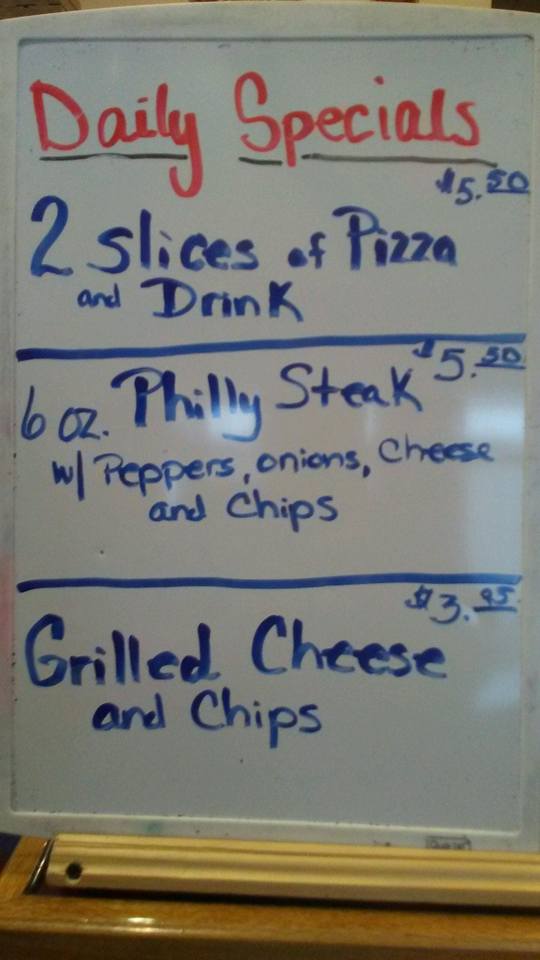 Daily Specials
$5.50
2 Slices of Pizza
and Drink
$5.50
6 oz. Philly Steak
w/ Peppers, onions, Cheese
and Chips
$3.95
Grilled Cheese
and Chips